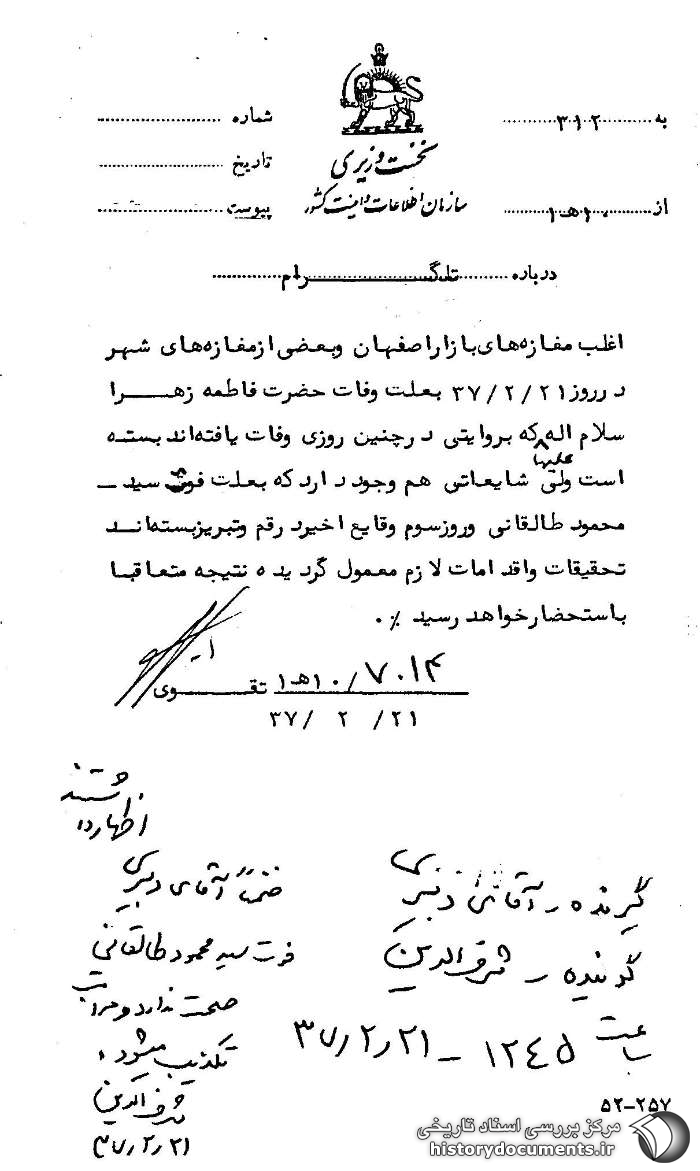 به ۳۱۲
شماره
نخست وزیری
تاریخ
از ۱۰هـ۱
سازمان اطلاعات و امنیت کشور
پیوست
درباره تلگرام
اغلب مغازه‌های بازار اصفهان وبعضی از مغازه‌های شهر
درروز ۳۷/۲/۲۱ بعلت وفات حضرت فاطمه زهرا
سلام اله علیها که بروایتی درچنین روزی وفات یافته‌اند بسته
است ولی شایعاتی هم وجود دارد که بعلت فوت سید
محمود طالقانی وروزسوم وقایع اخیرد رقم وتبریزبسته‌اند
تحقیقات واقدامات لازم معمول گردیده نتیجه متعاقبا
باستحضارخواهد رسید ٪.
۷۰۱۴/ ۱۰هـ۱ تقوی
۳۷/ ۲ /۲۱
گیرنده ـ آقای دبیری
گوینده ـ شرف‌الدین
ساعت ۱۲۴۵ ـ ۳۷٫۲٫۲۱
ضمناً آقای دبیری
اظهار داشتند
فوت سید محمود طالقانی
صحت ندارد و مراتب
تکذیب میشود.
شرف‌الدین
۳۷٫۲٫۲۱
۵۲-۲۵۷
مرکز بررسی اسناد تاریخی
historydocuments.ir